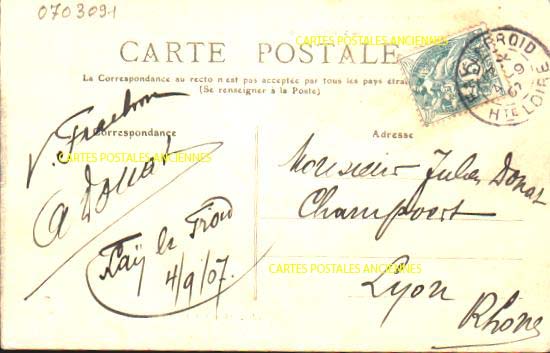 0703091
CARTES POSTALES ANCIENNES
CARTE POSTALE
La Correspondance au recto n'est pas acceptée par tous les pays
(Se renseigner à la Poste)
FROID
HTE LOIRE
Correspondance
V.
CARTES POSTALES ANCIENNES
A Donat
Faÿ le Froid
4/9/07.
Adresse
Monsieur Jules Donat
Champvert
CARTES POSTALES ANCIENNES
Lyon
Rhône